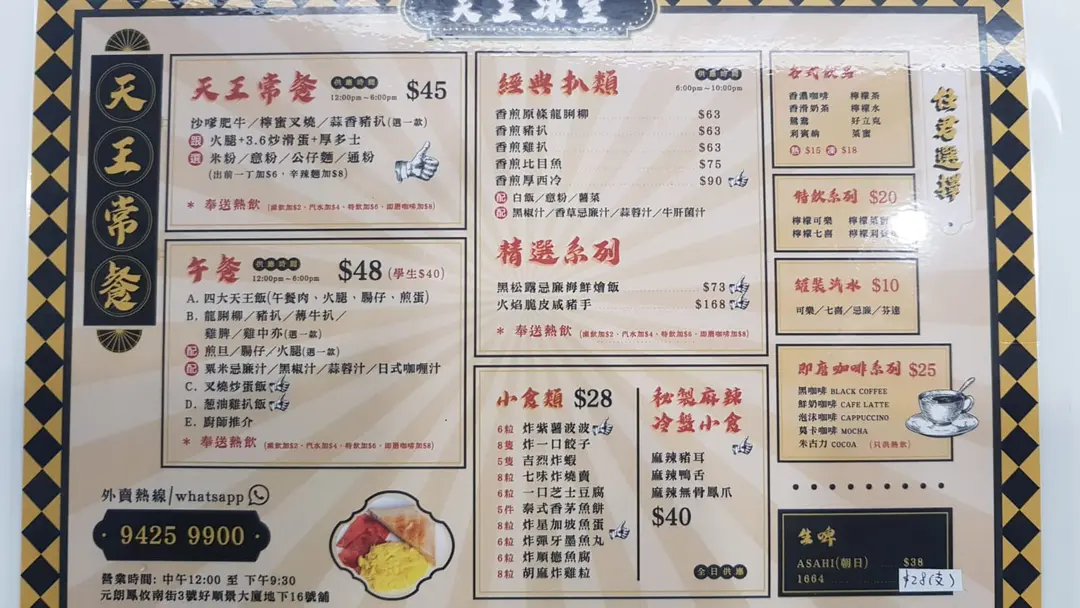 天王冰室
天王常餐
天王常餐 供應時間 12:00pm~6:00pm $45
沙嗲肥牛／檸蜜叉燒／蒜香豬扒(選一款)
跟 火腿+3.6炒滑蛋+厚多士
選 米粉／意粉／公仔麵／通粉
(出前一丁加$6，辛辣麵加$8)
* 奉送熱飲 (凍飲加$2、汽水加$4、特飲加$6、即磨咖啡加$8)
午餐 供應時間 12:00pm~6:00pm $48 (學生$40)
A. 四大天王飯(午餐肉、火腿、腸仔、煎蛋)
B. 龍脷柳／豬扒／薄牛扒／
雞脾／雞中亦(選一款)
配 煎旦／腸仔／火腿(選一款)
配 粟米忌廉汁／黑椒汁／蒜蓉汁／日式咖喱汁
C. 叉燒炒蛋飯
D. 葱油雞扒飯
E. 廚師推介
* 奉送熱飲 (凍飲加$2、汽水加$4、特飲加$6、即磨咖啡加$8)
外賣熱線/whatsapp
9425 9900
營業時間: 中午12:00 至 下午9:30
元朗鳳攸南街3號好順景大廈地下16號舖
經典扒類 供應時間 6:00pm~10:00pm
香煎原條龍脷柳 $63
香煎豬扒 $63
香煎雞扒 $63
香煎比目魚 $75
香煎厚西冷 $90
配 白飯／意粉／薯菜
配 黑椒汁／香草忌廉汁／蒜蓉汁／牛肝菌汁
精選系列
黑松露忌廉海鮮燴飯 $73
火焰脆皮咸豬手 $168
* 奉送熱飲 (凍飲加$2、汽水加$4、特飲加$6、即磨咖啡加$8)
小食類 $28
6粒 炸紫薯波波
8隻 炸一口餃子
5隻 吉烈炸蝦
8粒 七味炸燒賣
6粒 一口芝士豆腐
5件 泰式香茅魚餅
8粒 炸星加坡魚蛋
6粒 炸彈牙墨魚丸
6粒 炸順德魚腐
8粒 胡麻炸雞粒
秘製麻辣
冷盤小食
麻辣豬耳
麻辣鴨舌
麻辣無骨鳳爪
$40
全日供應
任君選擇
各式飲品
香濃咖啡 檸檬茶
香滑奶茶 檸檬水
鴛鴦 好立克
利賓納 菜蜜
熱 $15 凍 $18
特飲系列 $20
檸檬可樂 檸檬菜蜜
檸檬七喜 檸檬利賓
罐裝汽水 $10
可樂／七喜／忌廉／芬達
即磨咖啡系列 $25
黑咖啡 BLACK COFFEE
鮮奶咖啡 CAFE LATTE
泡沫咖啡 CAPPUCCINO
莫卡咖啡 MOCHA
朱古力 COCOA (只供熱飲)
生啤
ASAHI(朝日) $38
1664 $28(支)